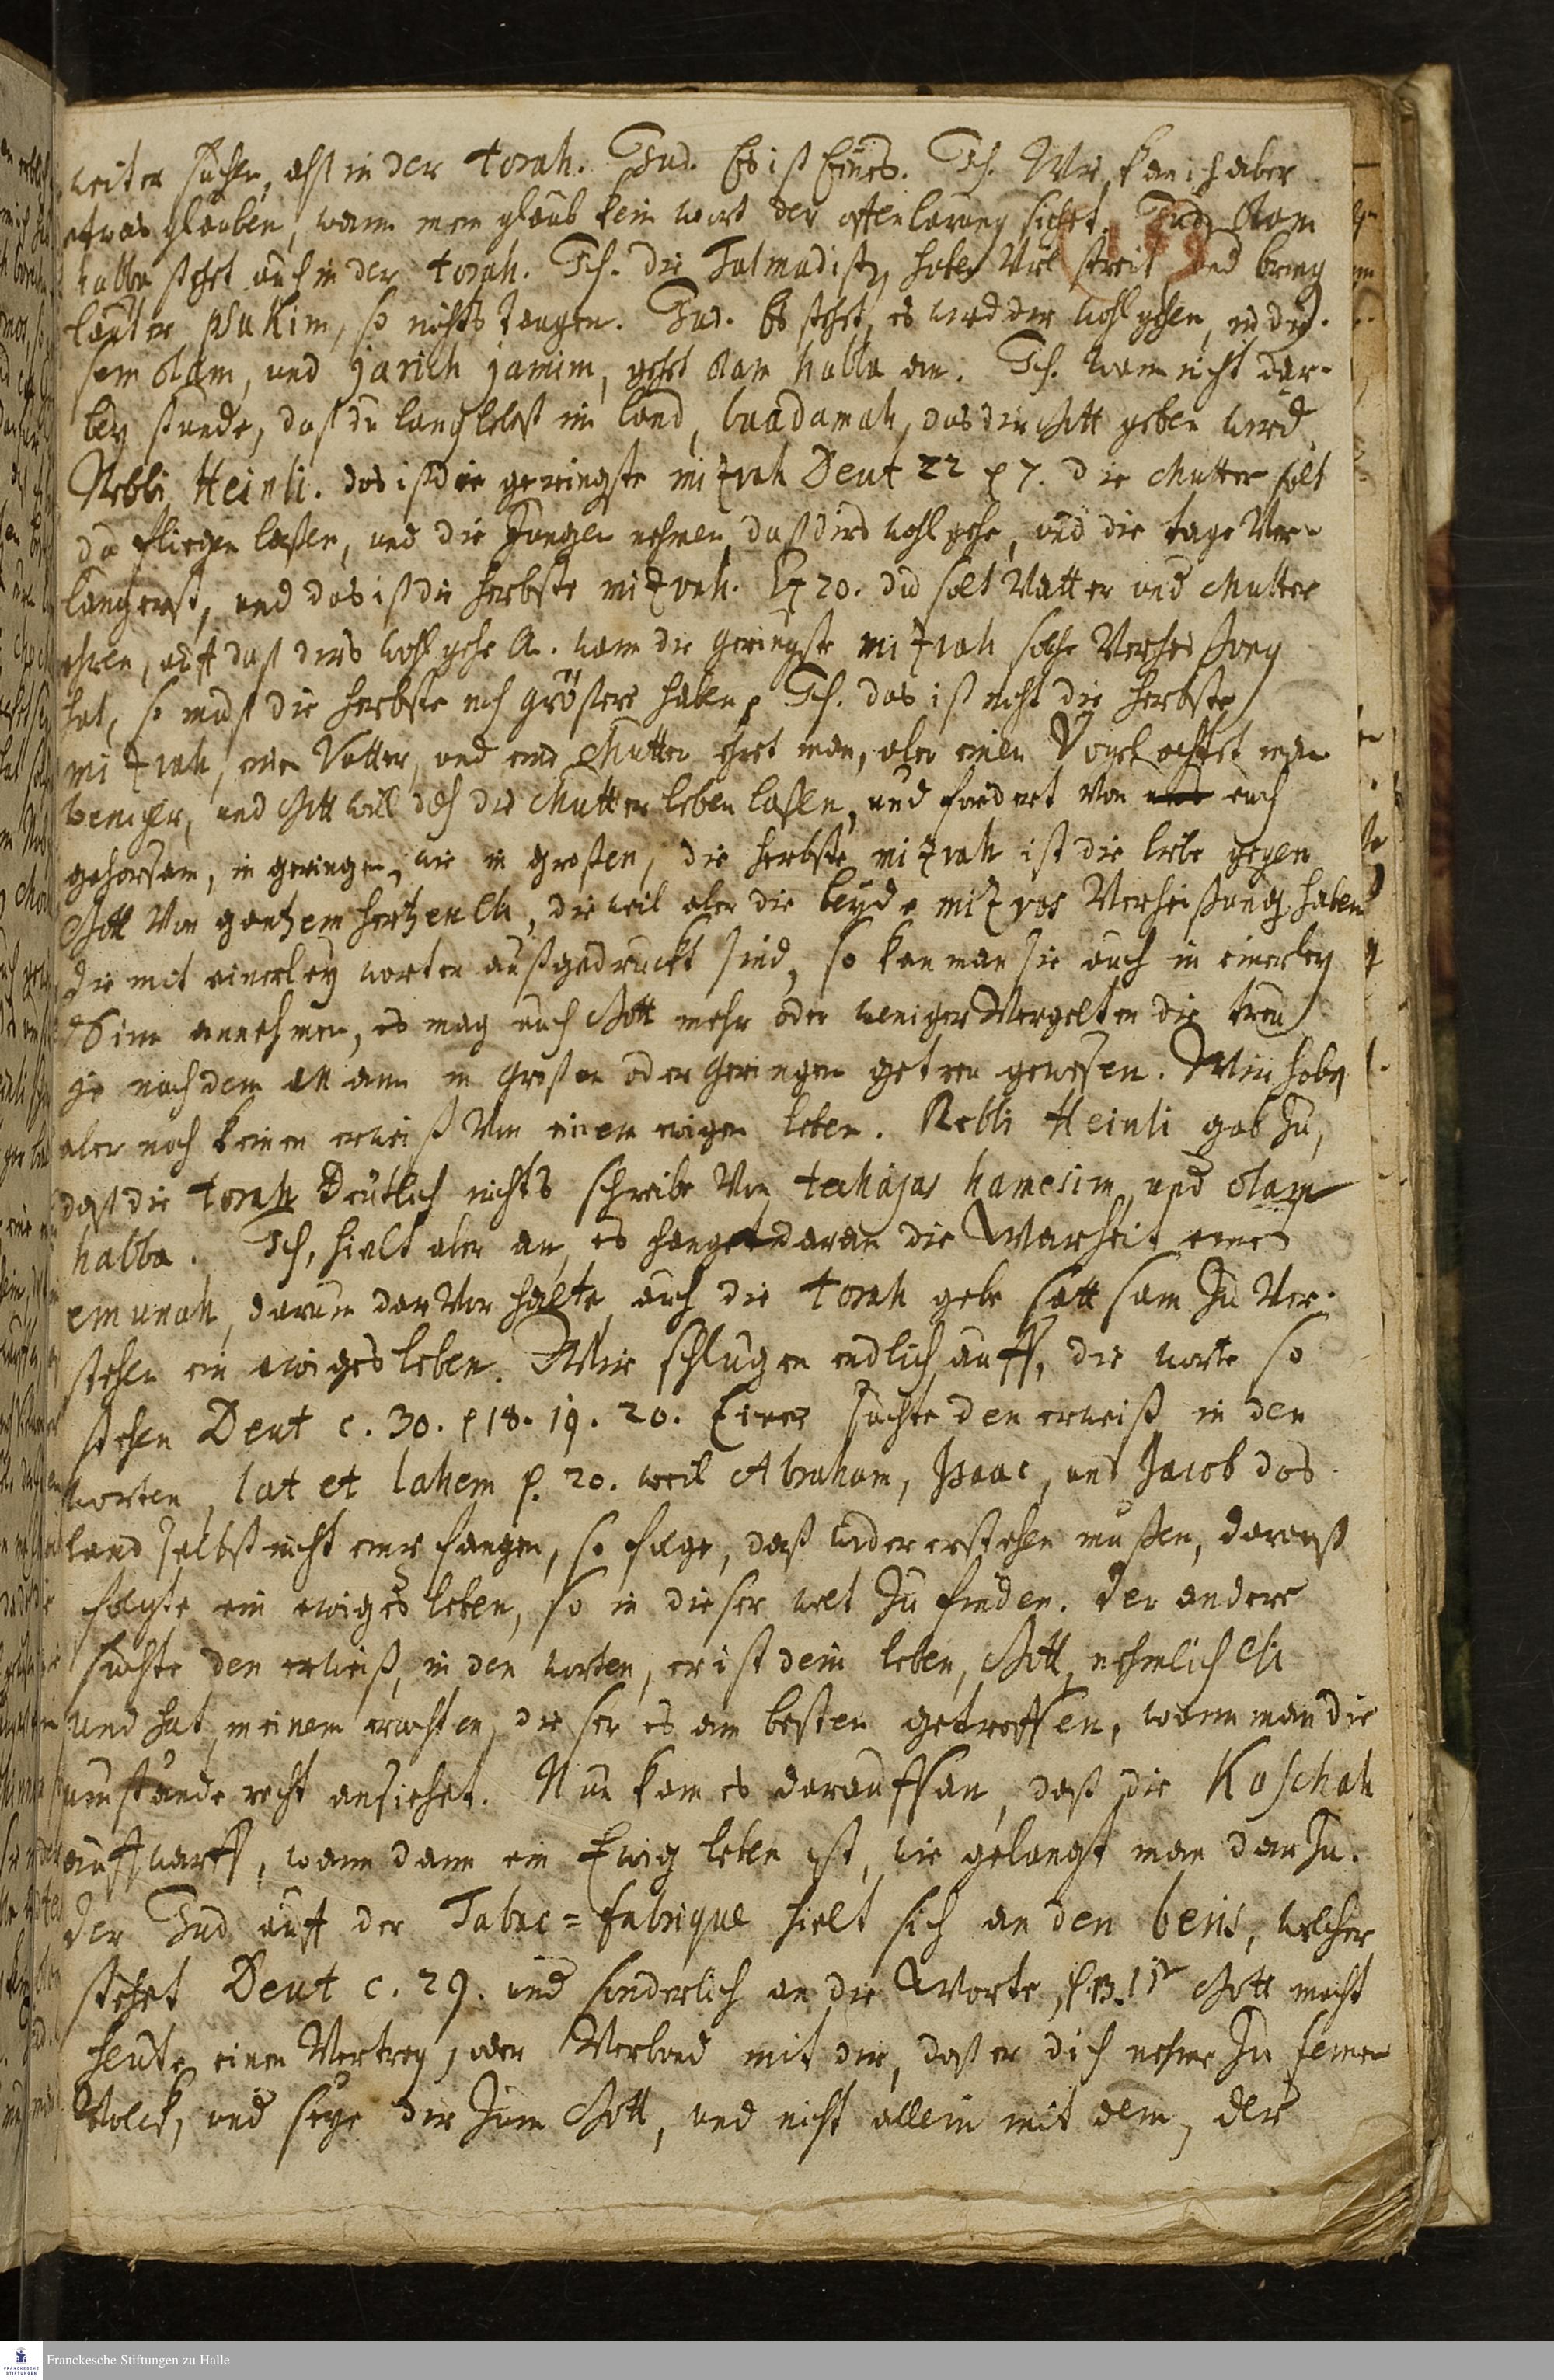 weiter suchen, alß in der torah. Jud. Es ist Eines. Ich. Wie kan ich aber
etwas glauben, wann mein glaub kein wort der offenbarung siehet. Jud. Olam
habba stehet auch in der torah. Ich. die Talmudisten haben Viel streit und bring
lauter psukim, so nichts taugen. Jud. Es stehet, es werd dir wohl gehen, in die-
sem olam, und jarich jamim, gehet olam habba an. Ich. wann nicht dar-
bey stunde, daß du lang lebest im land, baadamah, das dir Gott geben wird.
Rebbi Heinli. das ist die geringste mitzvah Deut 22 p 7. die Mutter solt
du fliegen laßen, und die Jungen nehmen, daß dirs wohl gehe, und die tage Ver-
längerst, und das ist die herbste mitzvah. Ex 20. du solt Vatter und Mutter
ehren, auff daß dirs wohl gehe &. wann die geringste mitzvah solche Verheißung
hat, so muß die herbste noch größere haben. Ich. das ist nicht die herbste
mitzvah, einen Vatter, und eine Mutter ehret man, aber einen Vogel achtet man
weniger, und Gott will doch die Mutter leben laßen, und fordert von euch
gehorsam, in geringen, wie in großen, die herbste mitzvah ist die liebe gegen
Gott Von gantzem hertzen &, dieweil aber die beyde mitzvos Verheißung haben
die mit einerley worten außgedruckt sind, so kan man sie auch in einerley
Sinn annehmen, es mag auch Gott mehr oder weniger Vergelten die treu
je nachdem Mann in Großen oder Geringen getreu gewesen. Wir haben
aber noch keinen erweiß Von einem ewigen leben. Rebbi Heinli gab zu,
daß die torah Deutlich nichts schreibe Von techájas hamesim, und olam
habba. Ich, hielt aber an, es hange daran die Warheit einer
emunah, darum darvor halte, auch die torah gebe sattsam zu Ver-
stehen ein ewiges leben. Wir schlugen endlich auff, die worte so
stehen Deut c. 30. p 18. 19. 20. Einer suchte den erweiß in den
worten, lat et lahem p. 20. weil Abraham, Isaac, und Jacob das
land selbst nicht empfangen, so folge, daß wider erstehen mußen, darauß
folgte ein ewiges leben, so in dieser welt zu finden. Der andere
suchte den erweiß, in den worten, er ist dein leben, Gott, nehmlich &
und hat, meinem erachten, dieser es am besten getroffen, wann man die
umstände recht ansiehet. Nun kam es darauff an, daß die Koschah
auffwarff, wann dann ein Ewig leben ist, wie gelangt man darzu.
Der Jud auff der Tabac=fabrique hielt sich an den beris, welcher
stehet Deut c. 29. und sonderlich an die Worte, Gott macht
heute einen Vertrag, oder Verbond mit dir, daß er dich nehme zu seinem
Volck, und seye dir zum Gott, und nicht allein mit dem, der
Franckesche Stiftungen zu Halle